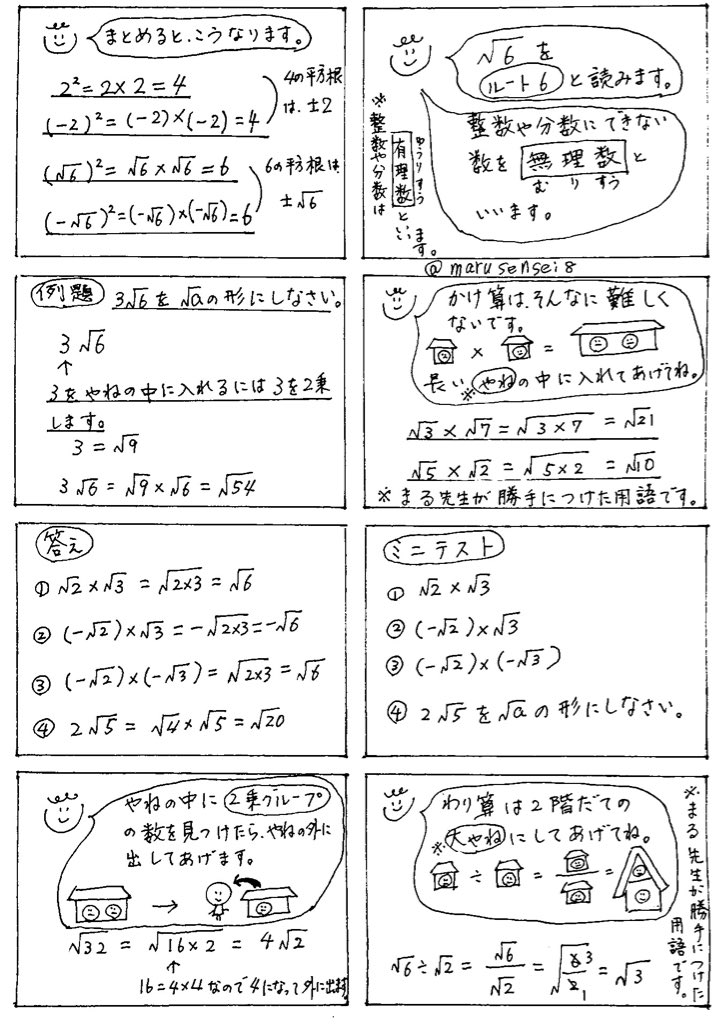 √6 を
ルート6 と読みます。
整数や分数にできない
数を 無理数 と
むりすう
いいます。
※整数や分数は
有理数
ゆうりすう
といいます。
@marusensei8
まとめると、こうなります。
2²=2×2=4
(-2)²=(-2)×(-2)=4
4の平方根
は、±2
(√6)²=√6×√6=6
(-√6)²=(-√6)×(-√6)=6
6の平方根は
±√6
かけ算は、そんなに難しく
ないです。
× =
長い※やねの中に入れてあげてね。
√3×√7=√3×7=√21
√5×√2=√5×2=√10
※まる先生が勝手につけた用語です。
例題 3√6を√aの形にしなさい。
3√6
↑
3をやねの中に入れるには3を2乗
します。
3=√9
3√6=√9×√6=√54
ミニテスト
① √2×√3
② (-√2)×√3
③ (-√2)×(-√3)
④ 2√5を√aの形にしなさい。
答え
① √2×√3=√2×3=√6
② (-√2)×√3=-√2×3=-√6
③ (-√2)×(-√3)=√2×3=√6
④ 2√5=√4×√5=√20
わり算は2階だての
※大やねにしてあげてね。
÷ = =
√6÷√2=√6/√2=√6/2=√3
3
1
※まる先生が勝手につけた
用語です。
やねの中に2乗グループ
の数を見つけたら、やねの外に
出してあげます。
→
√32=√16×2=4√2
↑
16=4×4なので4になって外に出ます